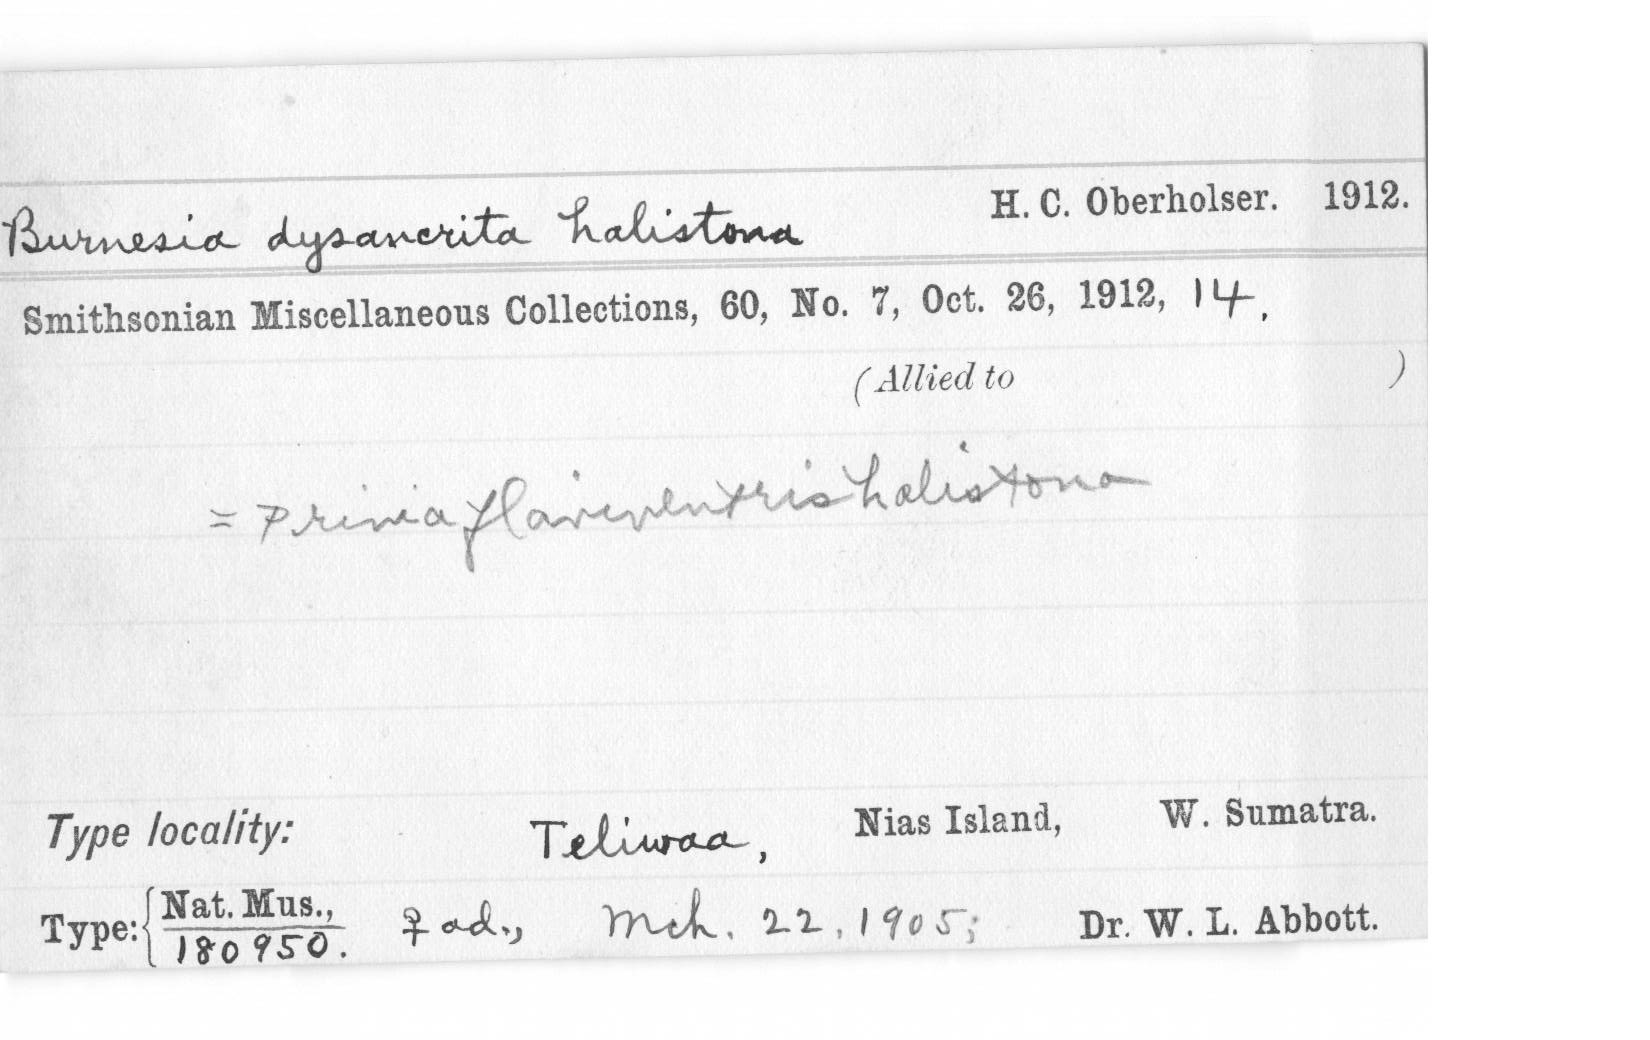 Burnesia dysancrita halistona H. C. Oberholser. 1912.
Smithsonian Miscellaneous Collections, 60, No. 7, Oct. 26, 1912, 14.
(Allied to )
= Prinia flaviventris halistona
Type locality: Teliwaa, Nias Island, W. Sumatra.
Type: { Nat. Mus., ♀ ad., Mch. 22, 1905; Dr. W. L. Abbott.
180950.